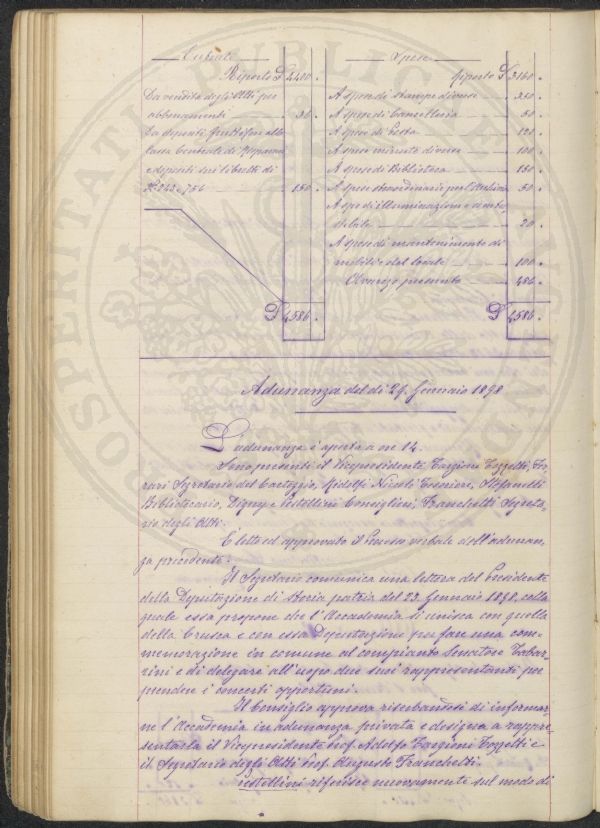 Entrate
Riporto £ 4400.
Da vendita degli Atti per
abbuonamenti 36.
Da depositi fruttiferi alla
Cassa Centrale di Risparmi
e depositi sui libretti di
N.° 242 e 756 150.
£ 4586.
Spese
riporto £ 3160.
A spese di stampe diverse 250.
A spese di Cancelleria 50.
A spese di Posta 120.
A spese minute diverse 100.
A spese di Biblioteca 150.
A spese straordinarie per l'Archivio 50.
A spe di illuminazione
20.
A spese di mantenimento di
mobili e del locale 100.
Avanzo presunto
£ 4586.
Adunanza del dì 29. Gennaio 1898
L'adunanza è aperta a ore 14.
Sono presenti il Vicepresidente Targioni Tozzetti, Fer-
rari Segretario del Carteggio, Ridolfi Nicolò Tesoriere, Stefanelli
Bibliotecario, Digny e Pestellini Consiglieri, Franchetti Segreta-
rio degli Atti.
È letto ed approvato il Processo verbale dell'adunan-
za precedente.
Il Segretario comunica una lettera del Presidente
della Deputazione di Storia patria del 23. Gennaio 1898, colla
quale essa propone che l'Accademia si unisca con quella
della Crusca e con essa Deputazione per fare una com-
memorazione in comune al compianto Senatore Tabar-
rini e di delegare all'uopo due suoi rappresentanti per
prendere i concerti opportuni.
Il Consiglio approva riserbandosi di informar-
ne l'Accademia in adunanza privata e designa a rappre-
sentarla il Vicepresidente Prof. Adolfo Targioni Tozzetti e
il Segretario degli Atti Prof. Augusto Franchetti.
Pestellini riferisce nuovamente sul modo di
PROSPERITATI PUBLICAE